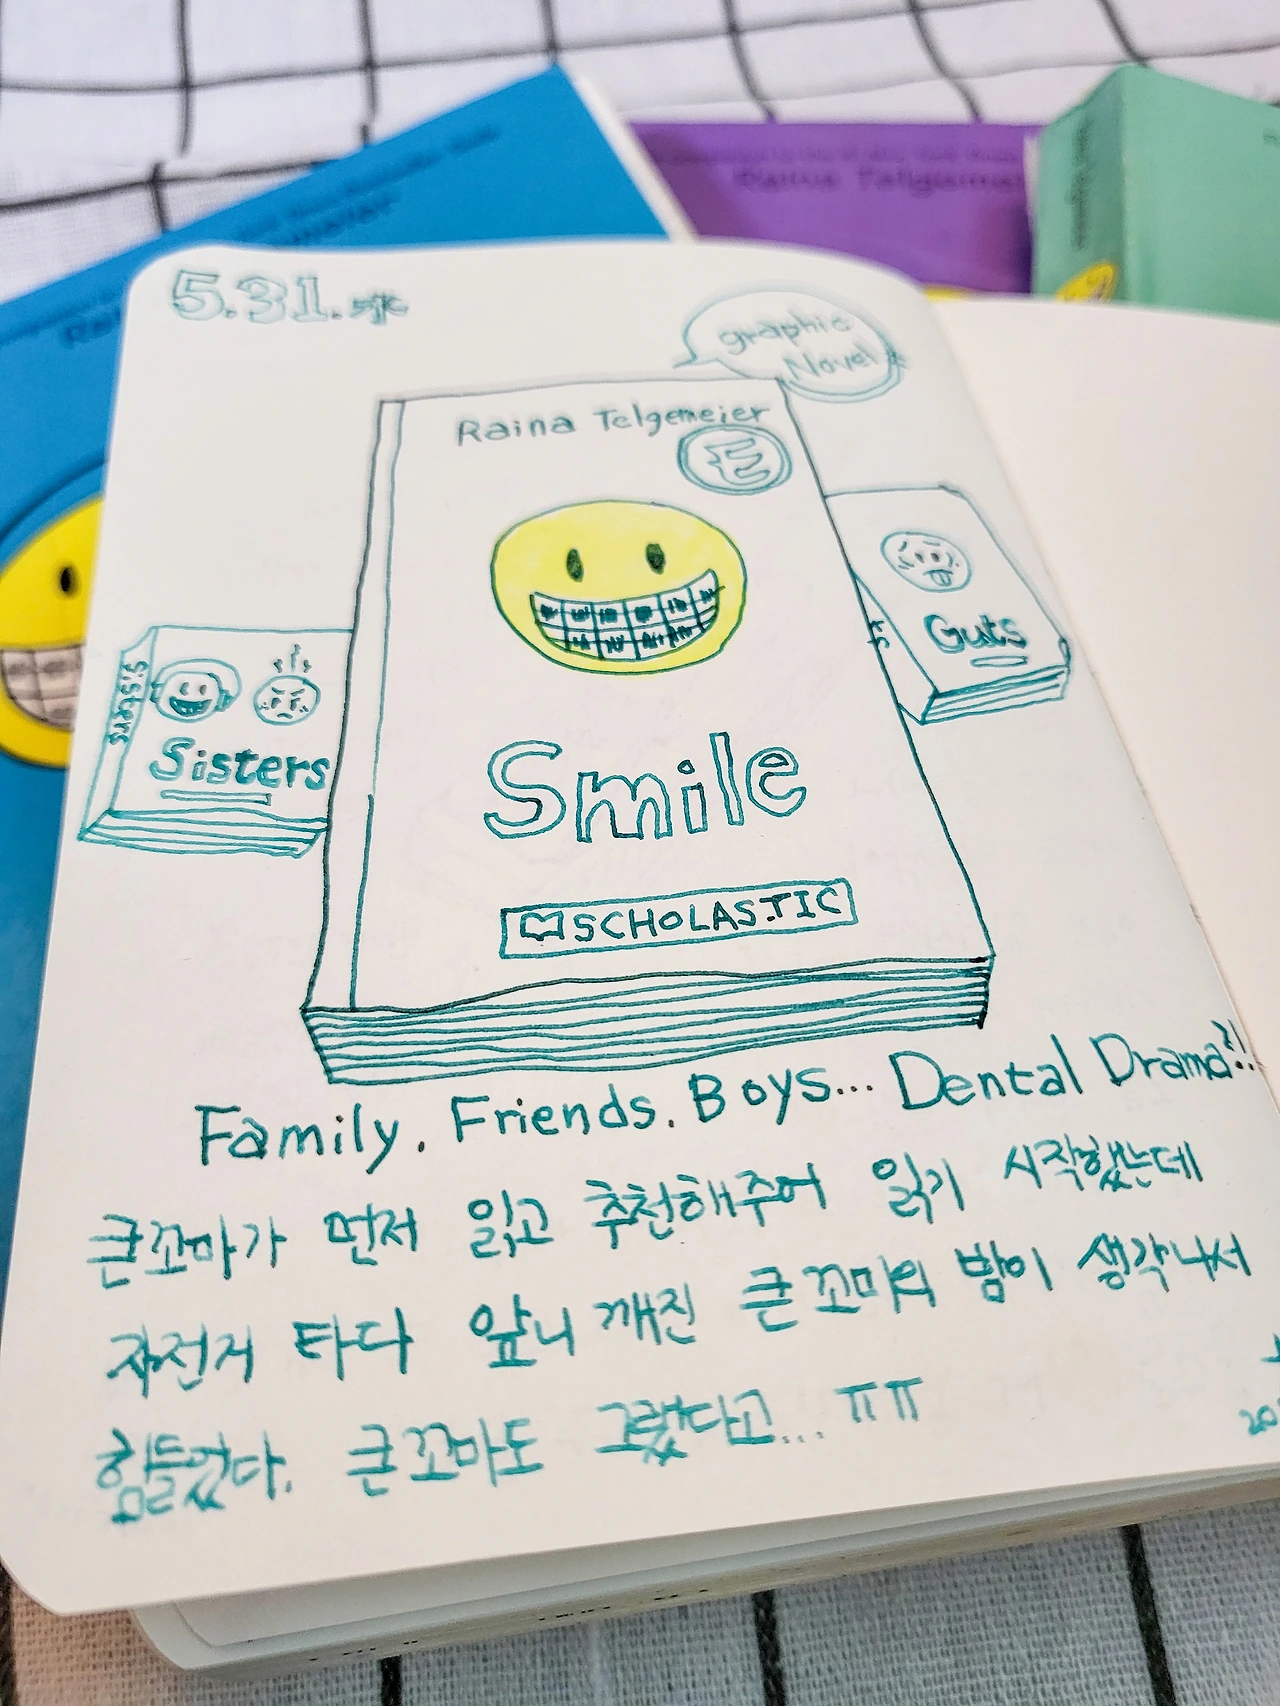 5.31.水
graphic
Novel
Raina Telgemeier
E
Smile
SCHOLASTIC
Sisters
Sisters
Guts
Family. Friends. Boys... Dental Drama?!!
큰꼬마가 먼저 읽고 추천해주어 읽기 시작했는데
자전거 타다 앞니 깨진 큰꼬마의 밤이 생각나서
힘들었다. 큰꼬마도 그랬다고... ㅠㅠ
Raina Telgemeier